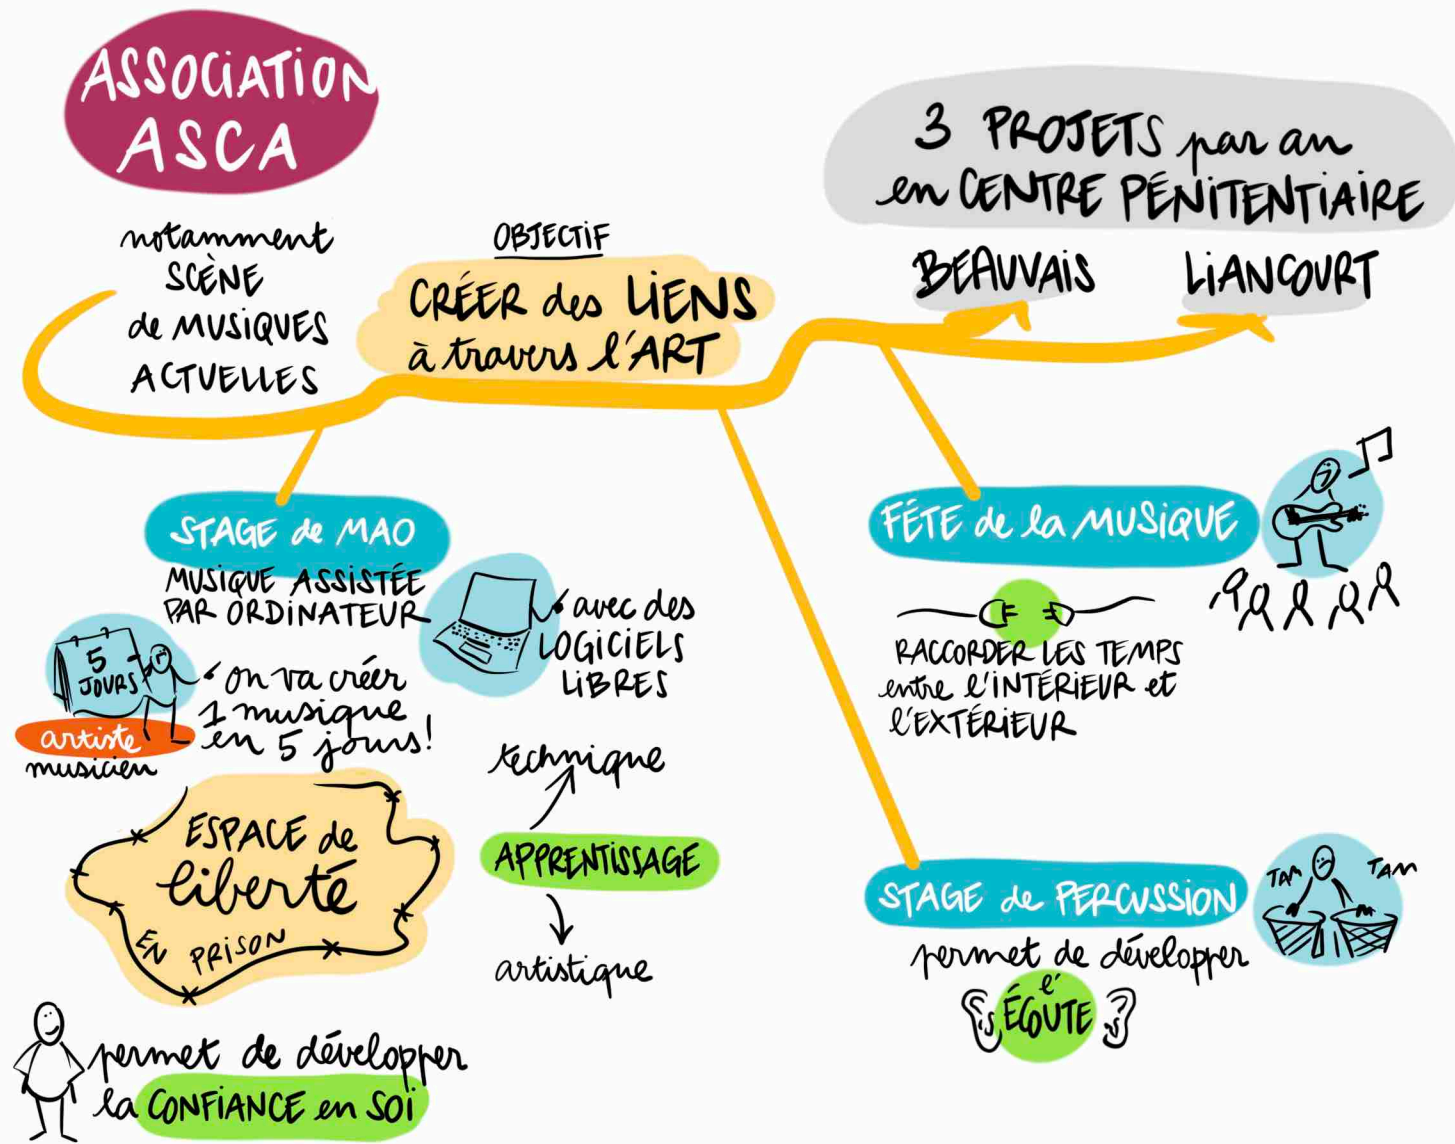 ASSOCIATION
ASCA
notamment
SCÈNE
de MUSIQUES
ACTUELLES
OBJECTIF
CRÉER des LIENS
à travers l'ART
3 PROJETS par an
en CENTRE PÉNITENTIAIRE
BEAUVAIS
LIANCOURT
STAGE de MAO
MUSIQUE ASSISTÉE
PAR ORDINATEUR
avec des
LOGICIELS
LIBRES
5
JOURS
artiste
musicien
on va créer
1 musique
en 5 jours!
ESPACE de
liberté
EN PRISON
technique
APPRENTISSAGE
artistique
permet de développer
la CONFIANCE en SOI
FÊTE de la MUSIQUE
RACCORDER LES TEMPS
entre l'INTÉRIEUR et
l'EXTÉRIEUR
STAGE de PERCUSSION
TAM
TAM
permet de développer
l'
ÉCOUTE